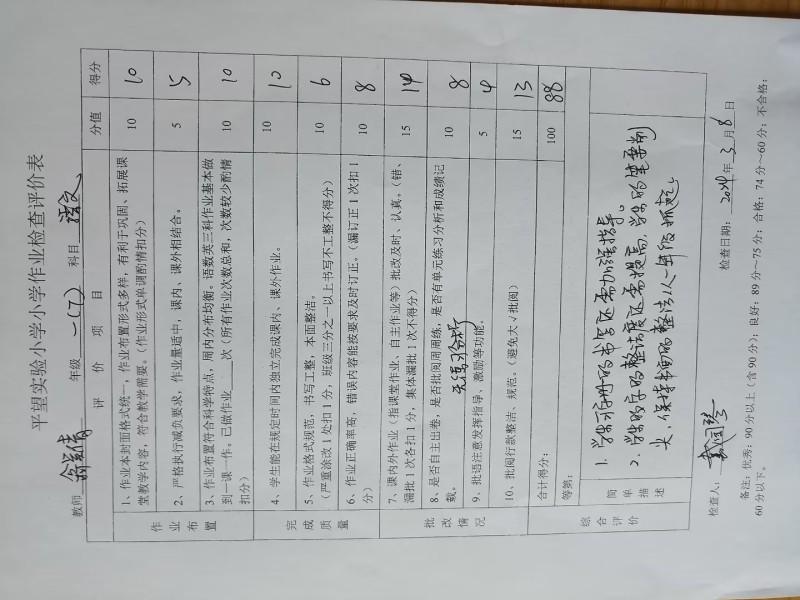 平望实验小学小学作业检查评价表
教师 年级 一(7) 科目 语文
评 价 项 目 分值 得分
作业布置
1、作业本封面格式统一，作业布置形式多样，有利于巩固、拓展课
堂教学内容，符合教学需要。（作业形式单调酌情扣分） 10 10
2、严格执行减负要求，作业量适中，课内、课外相结合。 5 5
3、作业布置符合科学特点，周内分布均衡，语数英三科作业基本做
到一课一作。已做作业____次（所有作业次数总和，次数较少酌情
扣分） 10 10
完成质量
4、学生能在规定时间内独立完成课内、课外作业。 10 10
5、作业格式规范，书写工整，本面整洁。
（严重涂改1处扣1分，班级三分之一以上书写不工整不得分） 10 6
6、作业正确率高，错误内容能按要求及时订正。（漏订正1次扣1
分） 10 8
批改情况
7、课内外作业（指课堂作业、自主作业等）批改及时、认真。（错、
漏批1次各扣1分，集体漏批1次不得分） 15 14
8、是否自主出卷，是否批阅周周练，是否有单元练习分析和成绩记
载。 无练习分析 10 8
9、批语注意发挥指导、激励等功能。 5 4
10、批阅行款整洁、规范。（避免大√批阅） 15 13
合计得分： 100 88
等第：
综合评价
简单描述
1. 学生习册的书写还需加强指导。
2. 学生的字的整洁度还需提高，学生的笔要削
尖，保持书面的整洁从一年级抓起。
检查人： 检查日期：2024年3月8日
备注：优秀：90分以上（含90分）；良好：89分～75分；合格：74分～60分；不合格：
60分以下。